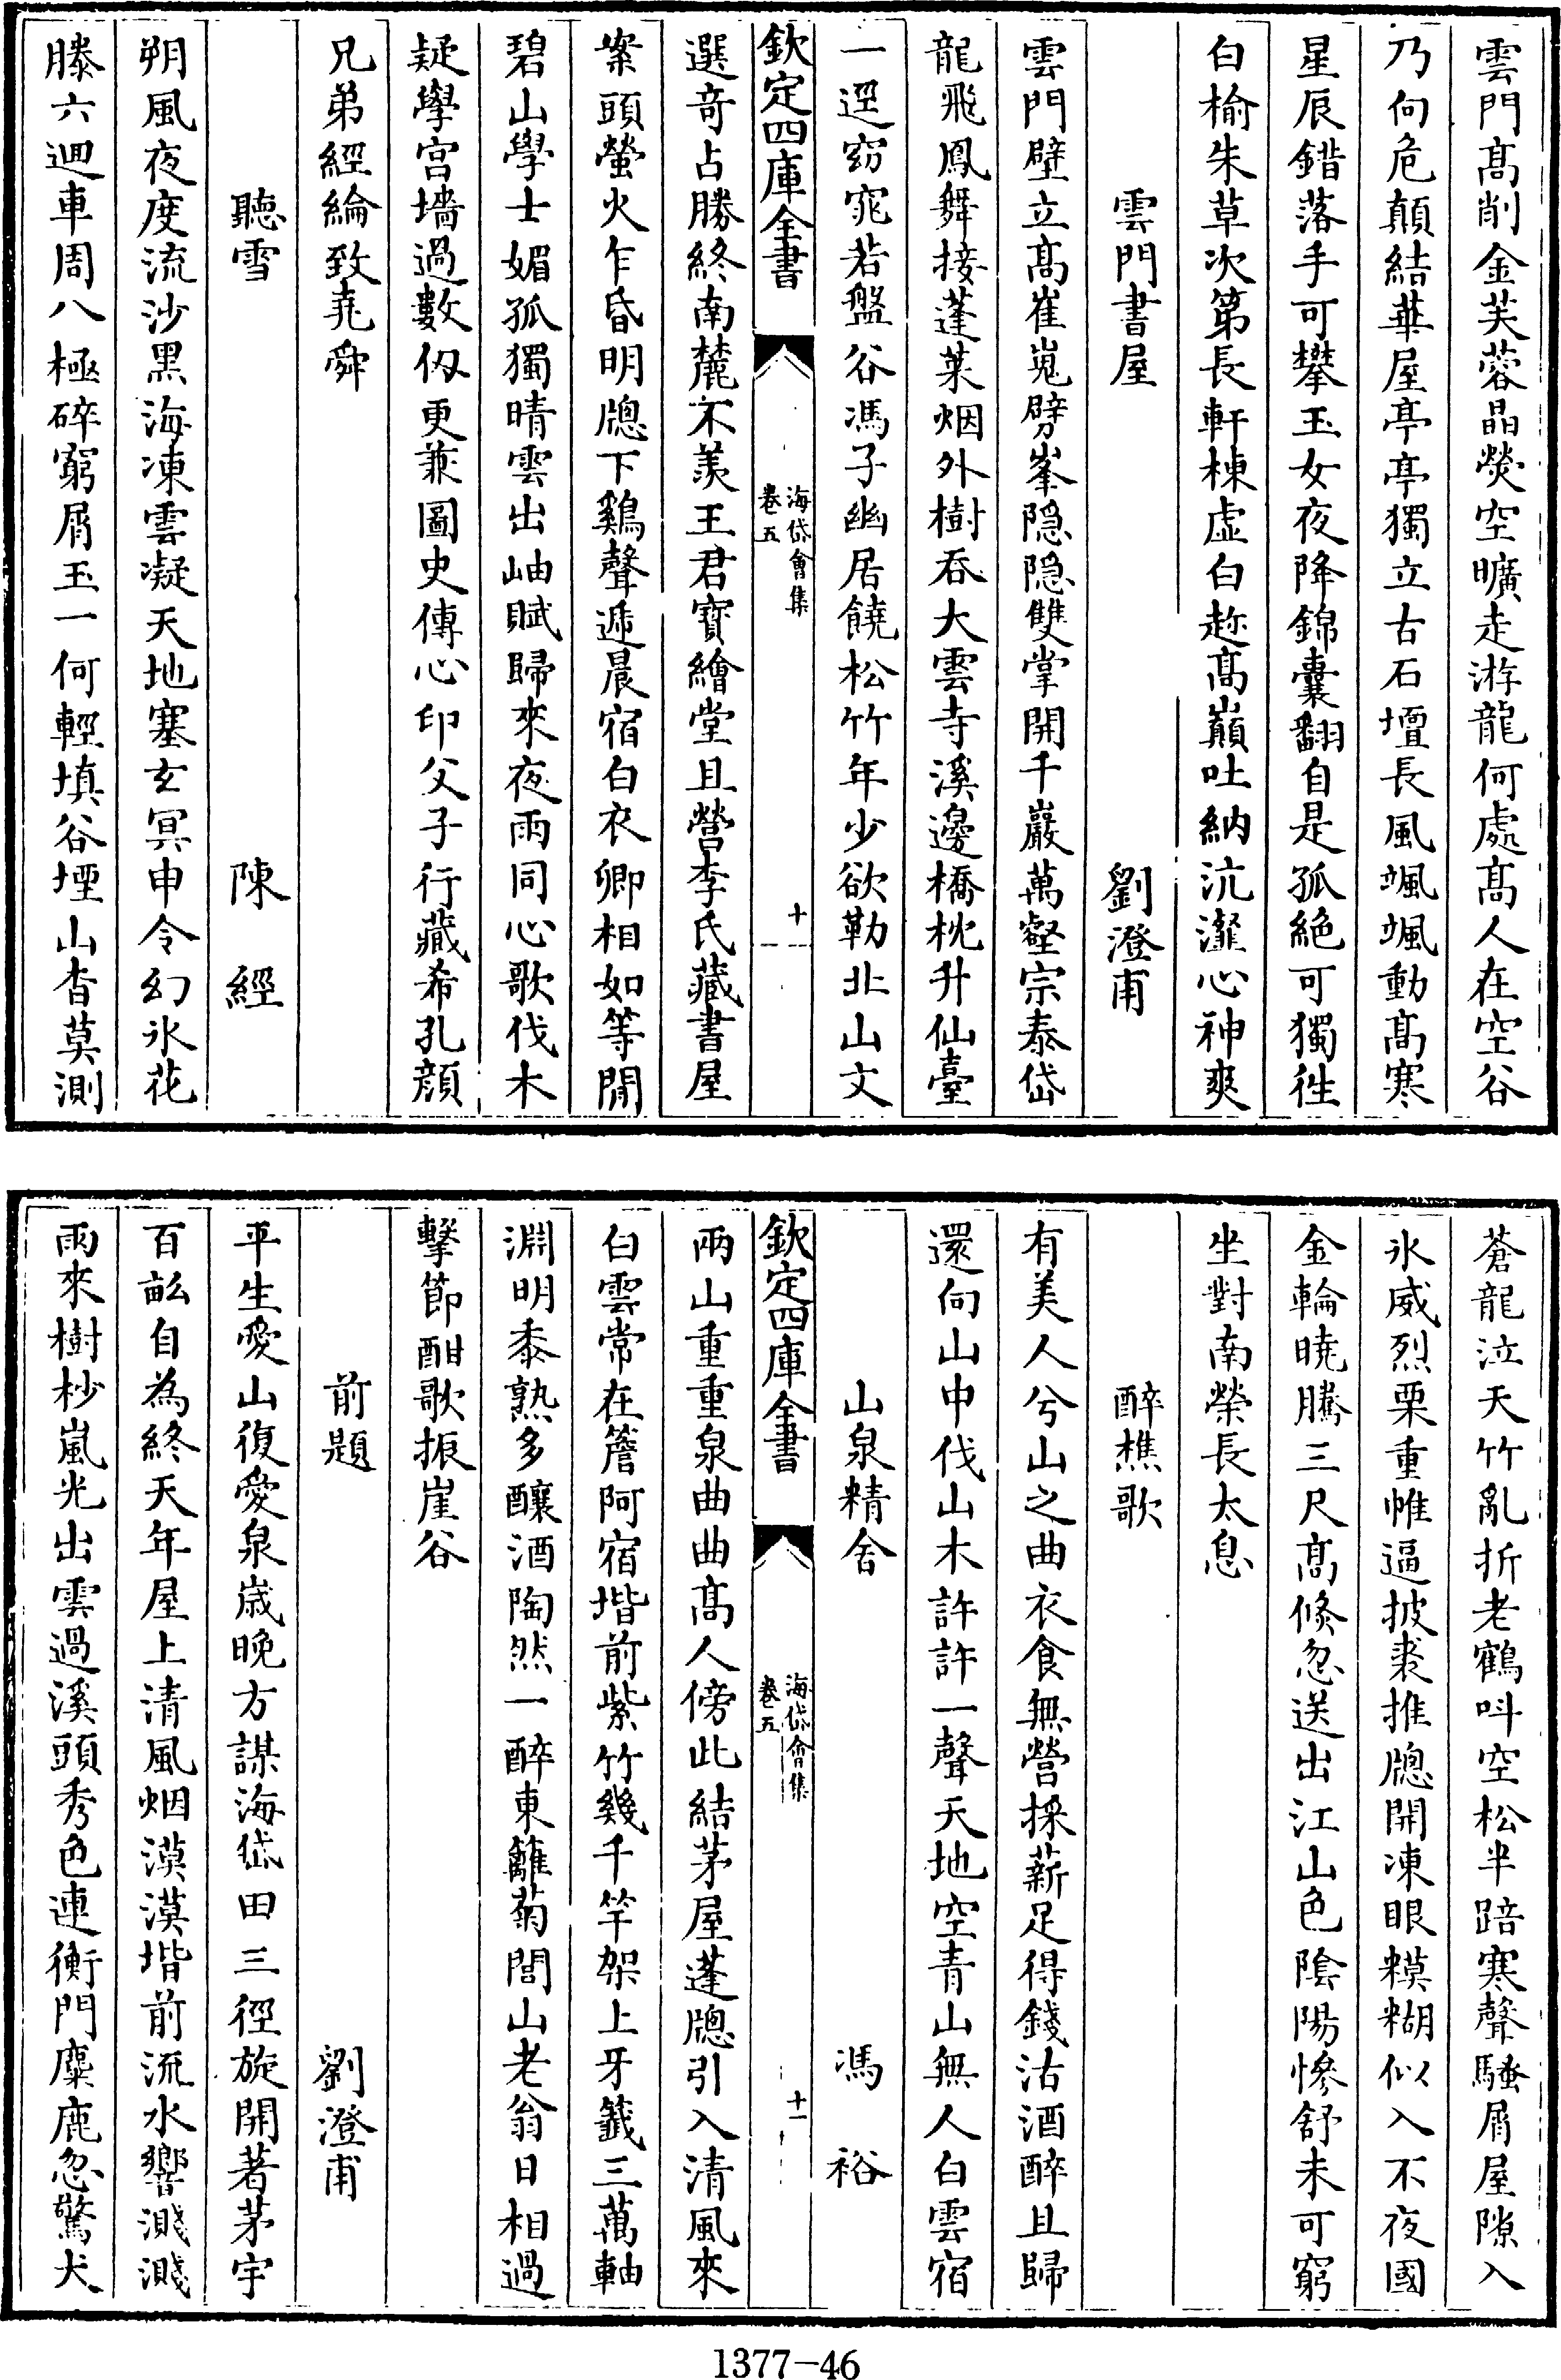 雲門髙削金芙蓉晶熒空曠走游龍何處髙人在空谷
乃向危顛結華屋亭亭獨立古石壇長風颯颯動髙寒
星辰錯落手可攀玉女夜降錦囊翻自是孤絶可獨徃
白榆朱草次第長軒棟虚白趂髙巔吐納沆瀣心神爽
雲門書屋　劉澄甫
雲門壁立髙崔嵬劈峯隠隠雙掌開千巖萬壑宗泰岱
龍飛鳳舞接蓬萊烟外樹吞大雲寺溪邊橋枕升仙臺
一逕窈窕若盤谷馮子幽居饒松竹年少欲勒北山文
欽定四庫全書
海岱會集
卷五
十一
選奇占勝終南麓不羨王君寳繪堂且營李氏藏書屋
案頭螢火乍昏明牕下鷄聲遞晨宿白衣卿相如等閒
碧山學士媚孤獨晴雲出岫賦歸來夜雨同心歌伐木
疑學宫墻過數仭更兼圖史傳心印父子行藏希孔顔
兄弟經綸致堯舜
聽雪　陳經
朔風夜度流沙黑海凍雲凝天地塞玄冥申令幻氷花
滕六廻車周八極碎窮屑玉一何輕填谷堙山杳莫測
蒼龍泣天竹亂折老鶴呌空松半踣寒聲騷屑屋隙入
氷威烈栗重帷逼披裘推牕開凍眼糢糊似入不夜國
金輪曉騰三尺髙倏忽送出江山色陰陽慘舒未可窮
坐對南榮長太息
醉樵歌
有美人兮山之曲衣食無營採薪足得錢沽酒醉且歸
還向山中伐山木許許一聲天地空青山無人白雲宿
山泉精舍　馮裕
欽定四庫全書
海岱會集
卷五
十一
兩山重重泉曲曲髙人傍此結茅屋蓬牕引入清風來
白雲常在簷阿宿堦前紫竹幾千竿架上牙籖三萬軸
淵明黍熟多釀酒陶然一醉東籬菊閭山老翁日相過
擊節酣歌振崖谷
前題　劉澄甫
平生愛山復愛泉歳晚方謀海岱田三徑旋開著茅宇
百畝自為終天年屋上清風烟漠漠堦前流水響濺濺
雨來樹杪嵐光出雲過溪頭秀色連衡門麋鹿忽驚犬
1377-46